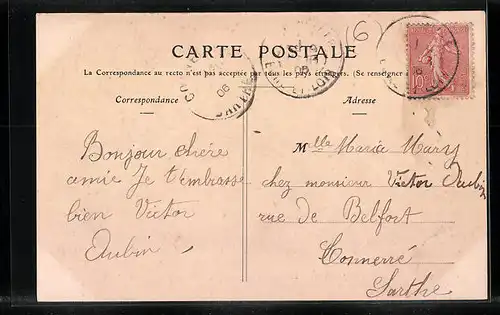 (6)
CARTE POSTALE
La Correspondance au recto n'est pas acceptée par tous les pays étrangers. (Se renseigner à
Correspondance
Adresse
Bonjour chère
amie Je t'embrasse
bien Victor
Aubin
Mlle Maria Mary
chez monsieur Victor Aubin
rue de Belfort
Connerré
Sarthe
06
EURE-ET-LOIR
08
10